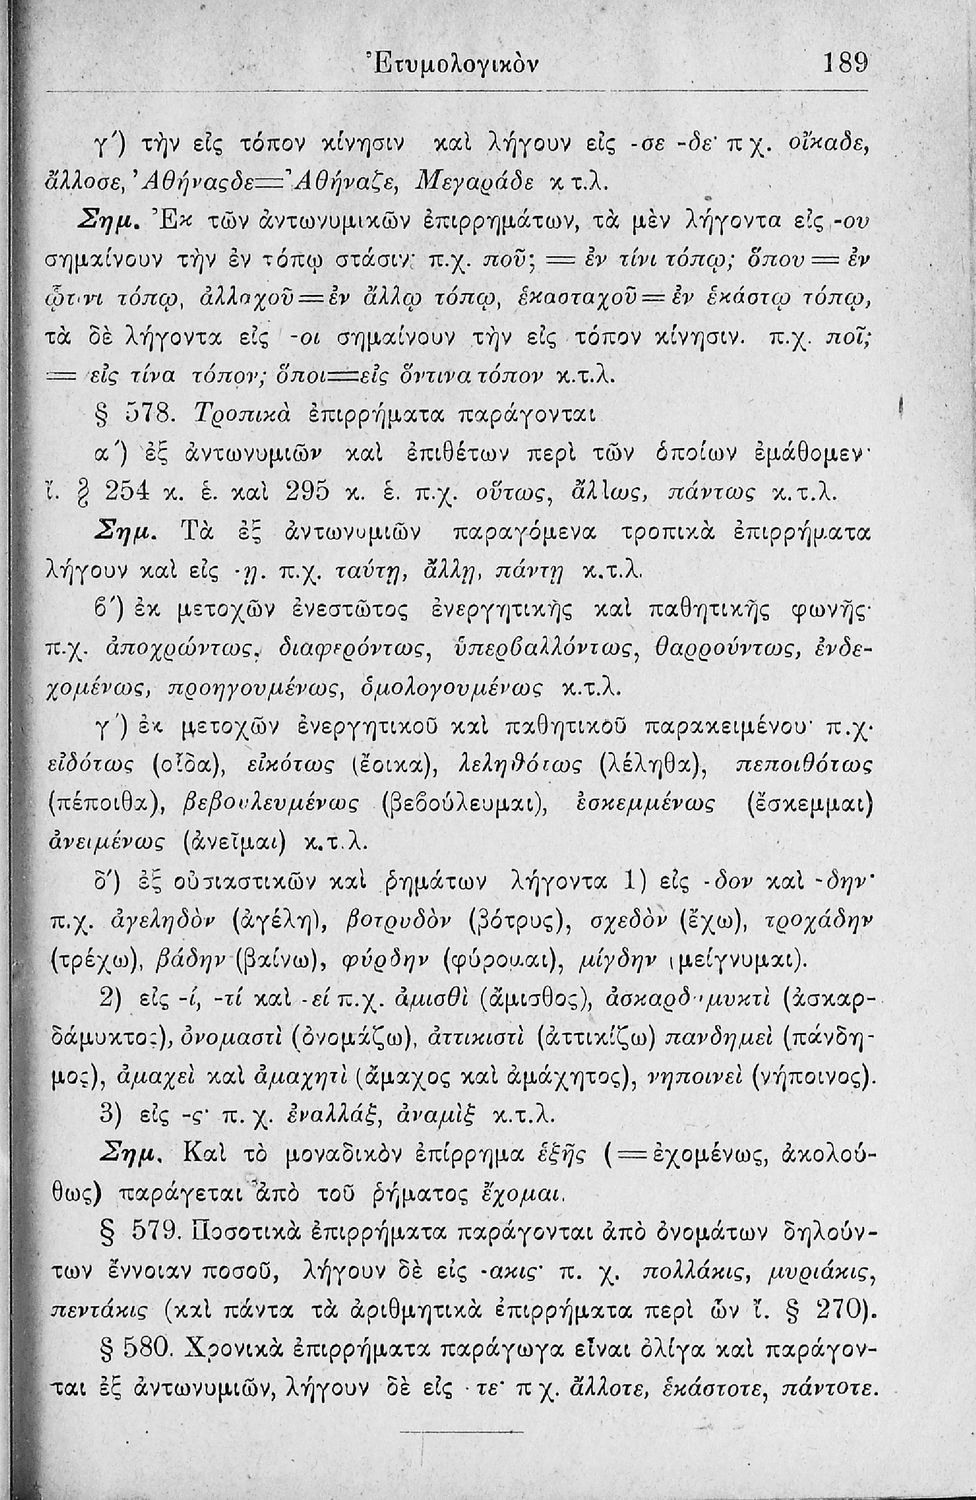 Ἐτυμολογικὸν 189
γ΄) τὴν εἰς τόπον κίνησιν καὶ λήγουν εἰς -σε -δε· π χ. οἴκαδε,
ἄλλοσε, Ἀθήναςδε=Ἀθήναζε, Μεγαράδε κ τ.λ.
Σημ. Ἐκ τῶν ἀντωνυμικῶν ἐπιρρημάτων, τὰ μὲν λήγοντα εἰς -ου
σημαίνουν τὴν ἐν τόπῳ στάσιν· π.χ. ποῦ; = ἐν τίνι τόπῳ; ὅπου = ἐν
ᾧτινι τόπῳ, ἀλλαχοῦ = ἐν ἄλλῳ τόπῳ, ἑκασταχοῦ = ἐν ἑκάστῳ τόπῳ,
τὰ δὲ λήγοντα εἰς -οι σημαίνουν τὴν εἰς τόπον κίνησιν. π.χ. ποῖ;
= εἰς τίνα τόπον; ὅποι=εἰς ὅντινα τόπον κ.τ.λ.
§ 578. Τροπικὰ ἐπιρρήματα παράγονται
α΄) ἐξ ἀντωνυμιῶν καὶ ἐπιθέτων περὶ τῶν ὁποίων ἐμάθομεν·
ἴ. § 254 κ. ἑ. καὶ 295 κ. ἑ. π.χ. οὕτως, ἄλλως, πάντως κ.τ.λ.
Σημ. Τὰ ἐξ ἀντωνυμιῶν παραγόμενα τροπικὰ ἐπιρρήματα
λήγουν καὶ εἰς -ῃ. π.χ. ταύτῃ, ἄλλῃ, πάντῃ κ.τ.λ.
β΄) ἐκ μετοχῶν ἐνεστῶτος ἐνεργητικῆς καὶ παθητικῆς φωνῆς·
π.χ. ἀποχρώντως, διαφερόντως, ὑπερβαλλόντως, θαρρούντως, ἐνδε-
χομένως, προηγουμένως, ὁμολογουμένως κ.τ.λ.
γ΄) ἐκ μετοχῶν ἐνεργητικοῦ καὶ παθητικοῦ παρακειμένου· π.χ.
εἰδότως (οἶδα), εἰκότως (ἔοικα), λεληθότως (λέληθα), πεποιθότως
(πέποιθα), βεβουλευμένως (βεβούλευμαι), ἐσκεμμένως (ἔσκεμμαι)
ἀνειμένως (ἀνεῖμαι) κ.τ.λ.
δ΄) ἐξ οὐσιαστικῶν καὶ ῥημάτων λήγοντα 1) εἰς -δον καὶ -δην·
π.χ. ἀγεληδὸν (ἀγέλη), βοτρυδὸν (βότρυς), σχεδὸν (ἔχω), τροχάδην
(τρέχω), βάδην (βαίνω), φύρδην (φύρομαι), μίγδην (μείγνυμαι).
2) εἰς -ί, -τί καὶ -εί π.χ. ἀμισθὶ (ἄμισθος), ἀσκαρδαμυκτὶ (ἀσκαρ-
δάμυκτος), ὀνομαστὶ (ὀνομάζω), ἀττικιστὶ (ἀττικίζω) πανδημεὶ (πάνδη-
μος), ἀμαχεὶ καὶ ἀμαχητὶ (ἄμαχος καὶ ἀμάχητος), νηποινεὶ (νήποινος).
3) εἰς -ς· π. χ. ἐναλλάξ, ἀναμὶξ κ.τ.λ.
Σημ. Καὶ τὸ μοναδικὸν ἐπίρρημα ἑξῆς (=ἐχομένως, ἀκολού-
θως) παράγεται ἀπὸ τοῦ ῥήματος ἔχομαι.
§ 579. Ποσοτικὰ ἐπιρρήματα παράγονται ἀπὸ ὀνομάτων δηλούν-
των ἔννοιαν ποσοῦ, λήγουν δὲ εἰς -ακις· π. χ. πολλάκις, μυριάκις,
πεντάκις (καὶ πάντα τὰ ἀριθμητικὰ ἐπιρρήματα περὶ ὧν ἴ. § 270).
§ 580. Χρονικὰ ἐπιρρήματα παράγωγα εἶναι ὀλίγα καὶ παράγον-
ται ἐξ ἀντωνυμιῶν, λήγουν δὲ εἰς -τε· π χ. ἄλλοτε, ἑκάστοτε, πάντοτε.